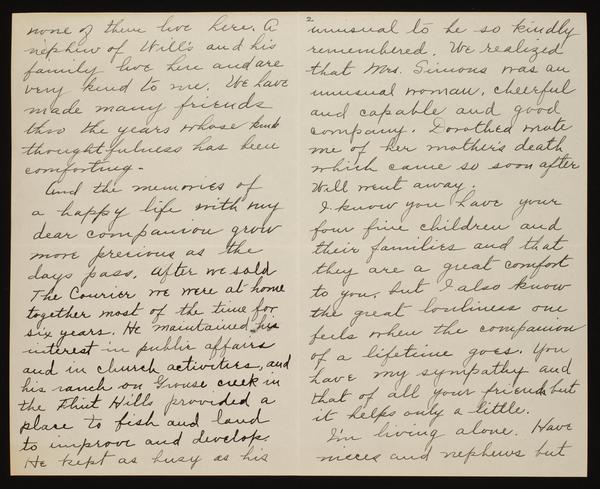 2
unusual to be so kindly
remembered. We realized
that Mrs. Simons was an
unusual woman, cheerful
and capable and good
company. Dorothea wrote
me of her mother's death
which came so soon after
Will went away.
I know you have your
four fine children and
their families and that
they are a great comfort
to you, but I also know
the great lonliness one
feels when the companion
of a lifetime goes. You
have my sympathy and
that of all your friends but
it helps only a little.
I'm living alone. Have
nieces and nephews but
none of them live here. A
nephew of Will's and his
family live here and are
very kind to me. We have
made many friends
thro the years whose kind
thoughtfulness has been
comforting.
And the memories of
a happy life with my
dear companion grow
more precious as the
days pass. After we sold
The Courier we were at home
together most of the time for
six years. He maintained his
interest in public affairs
and in church activities, and
his ranch on Grouse creek in
the Flint Hills provided a
place to fish and land
to improve and develop.
He kept as busy as his